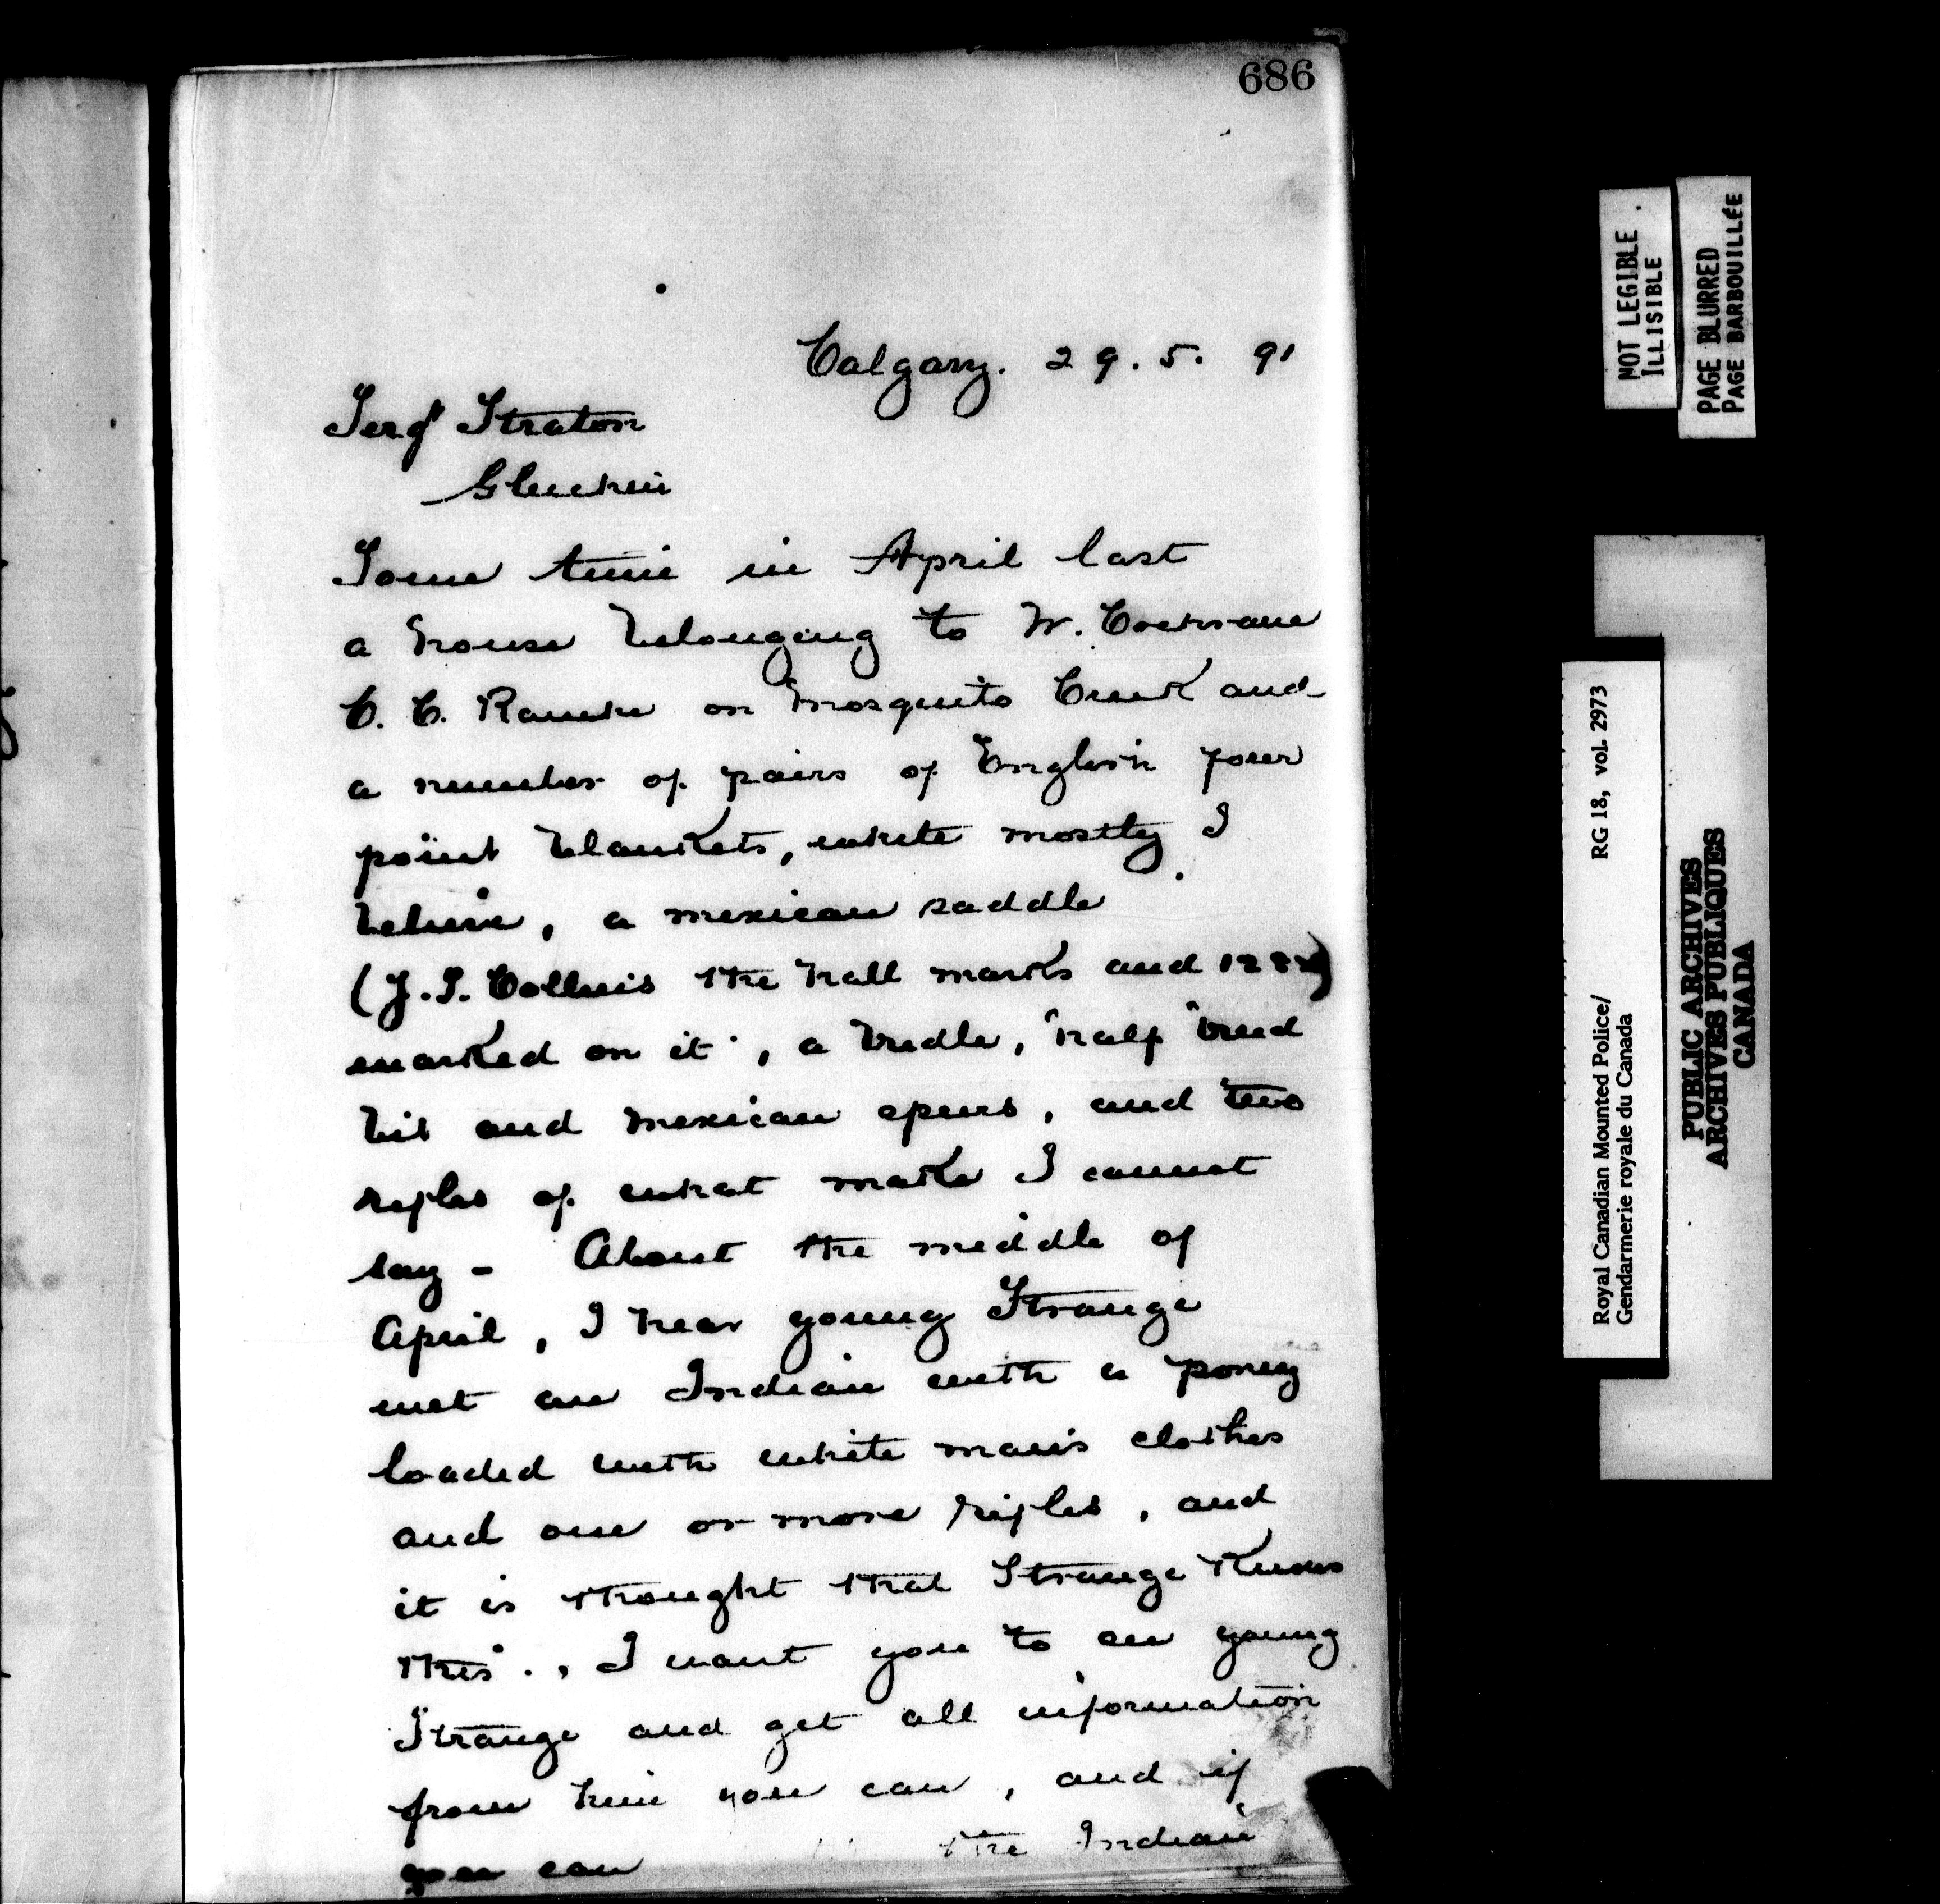 686
Calgary. 29.5. 91
Sergt Straton
Gleichen
Some time in April last
a house belonging to W. Cochrane
C. C. Ranche on Mosquito Creek and
a number of pairs of English four
point blankets, white mostly I
believe, a mexican saddle
(J.S. Collins the hall marks and
marked on it, a bridle, half breed
bit and Mexican spurs, and two
rifles of what make I cannot
say - About the middle of
April, I hear young Strange
met an Indian with a poney
loaded with white man's clothes
and one or more rifles, and
it is thought that Strange knows
this., I want you to see young
Strange and get all information
from him you can, and if
you can the Indian
NOT LEGIBLE
ILLISIBLE
PAGE BLURRED
PAGE BARBOUILLÉE
Royal Canadian Mounted Police/ RG 18, vol. 2973
Gendarmerie royale du Canada
PUBLIC ARCHIVES
ARCHIVES PUBLIQUES
CANADA